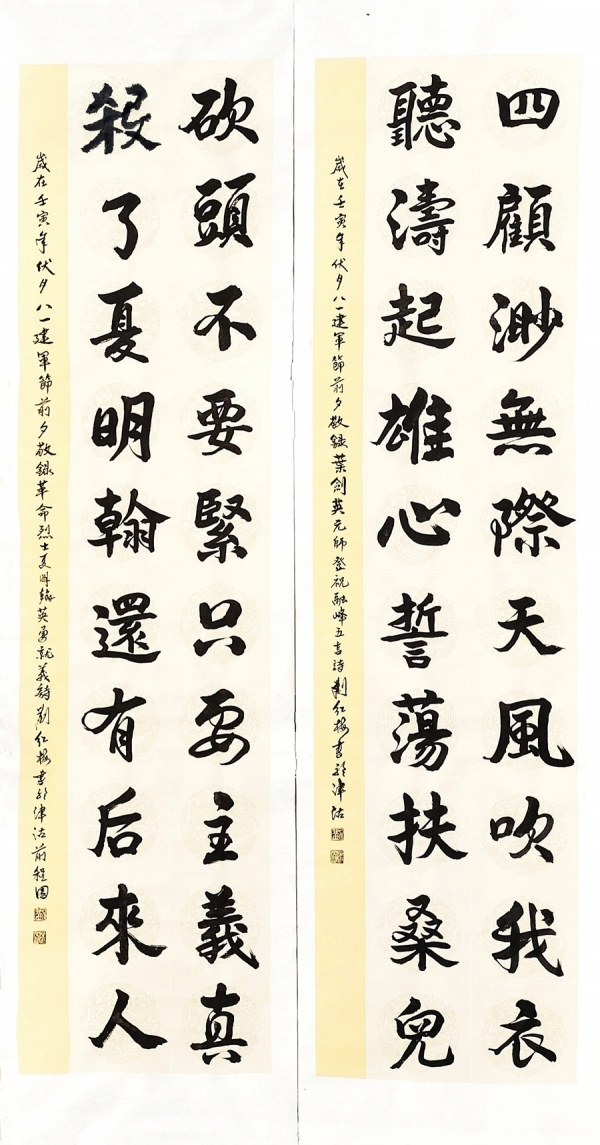 四顧渺無際天風吹我衣
聽濤起雄心誓蕩扶桑兒
歲在壬寅年伏夕八一建軍節前夕敬錄葉劍英元帥登祝融峰五言詩劉紅梅書於津沽
砍頭不要緊只要主義真
殺了夏明翰還有后來人
歲在壬寅年伏夕八一建軍節前夕敬錄革命烈士夏明翰英勇就義詩劉紅梅書於津沽前程園